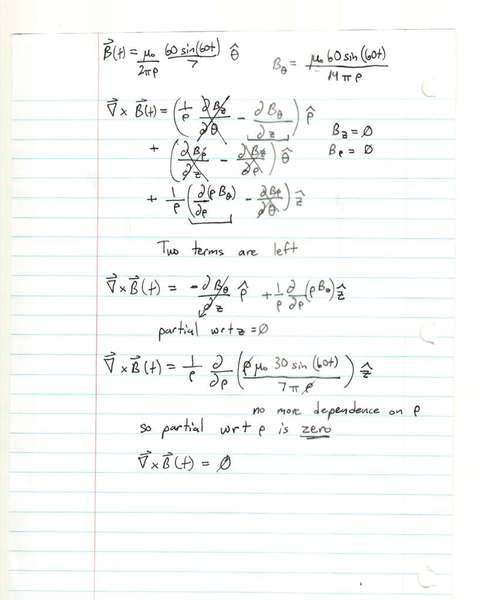 B⃗(t) = μ₀/2πρ 60 sin(60t)/7 θ̂
B_θ = μ₀ 60 sin(60t)/14πρ
∇⃗ × B⃗(t) = (1/ρ ∂B_z/∂θ - ∂B_θ/∂z) ρ̂
B_z = ∅
+ (∂B_ρ/∂z - ∂B_z/∂ρ) θ̂
B_ρ = ∅
+ 1/ρ (∂(ρB_θ)/∂ρ - ∂B_ρ/∂θ) ẑ
Two terms are left
∇⃗ × B⃗(t) = -∂B_θ/∂z ρ̂ + 1/ρ ∂/∂ρ (ρB_θ) ẑ
partial wrt z = ∅
∇⃗ × B⃗(t) = 1/ρ ∂/∂ρ (ρ μ₀ 30 sin(60t)/7πρ) ẑ
no more dependence on ρ
so partial wrt ρ is zero
∇⃗ × B⃗(t) = ∅